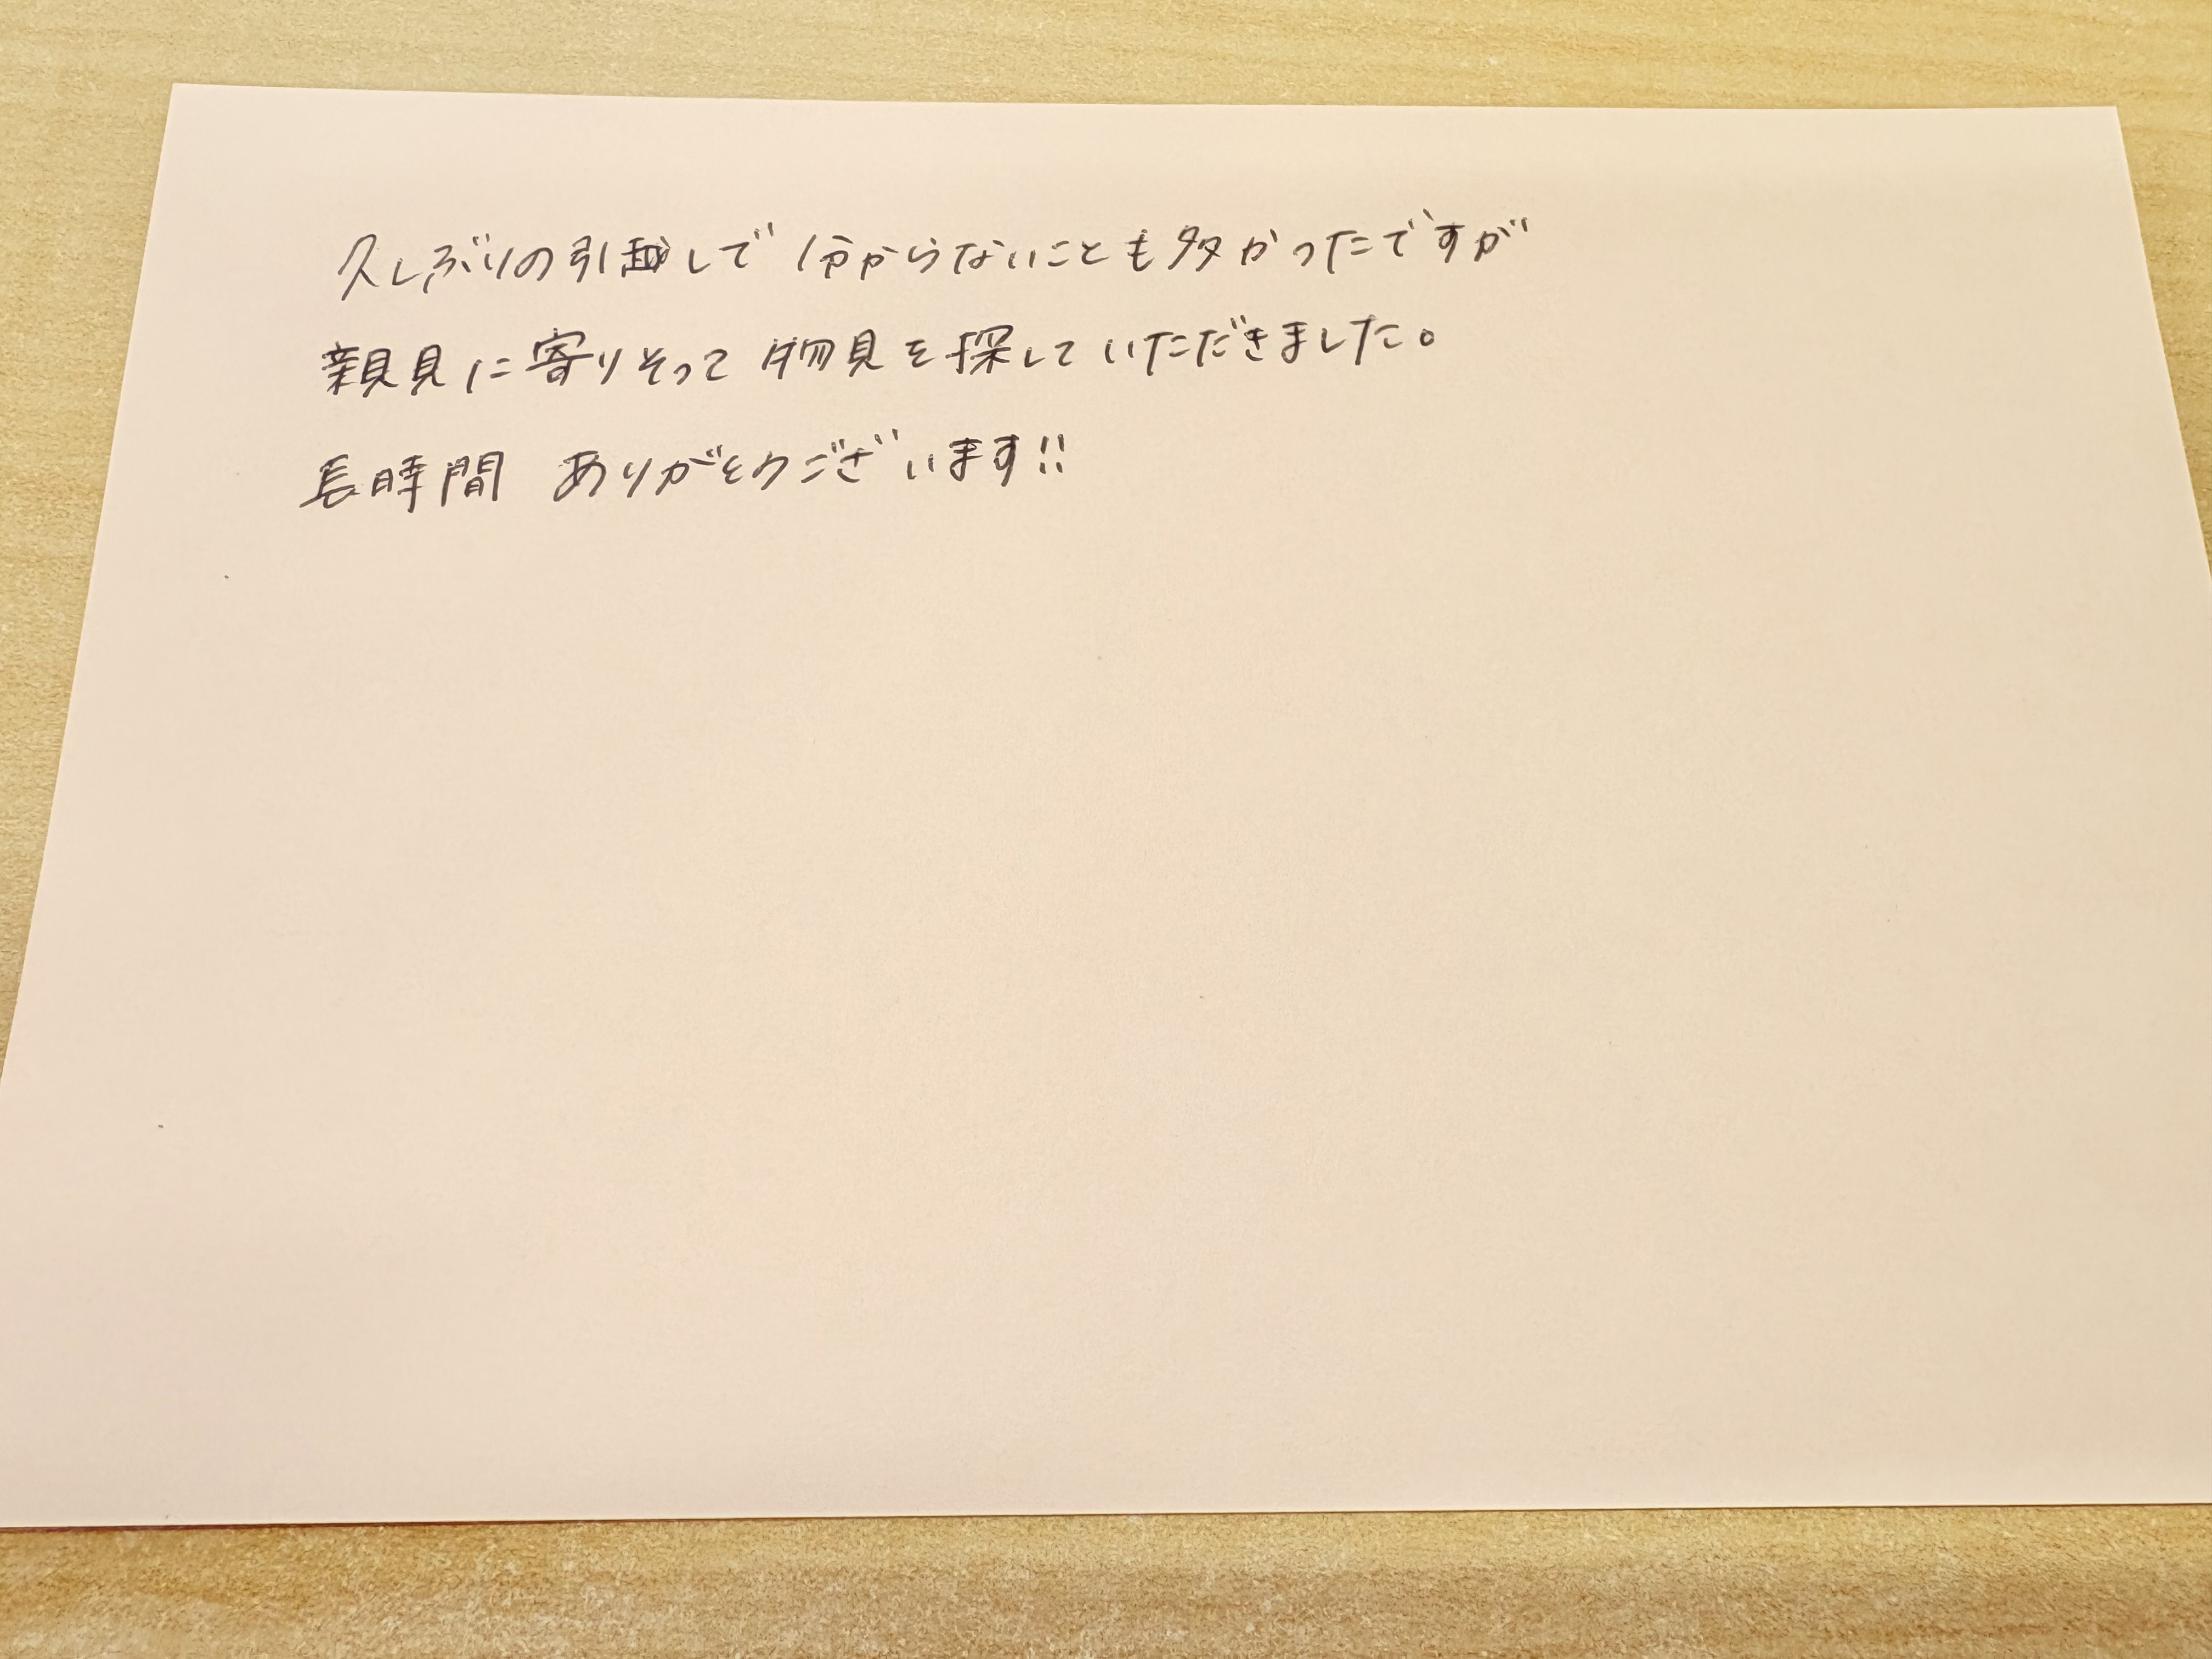 久しぶりの引越しで分からないことも多かったですが
親見に寄りそって物見を探していただきました。
長時間 ありがとうございます!!